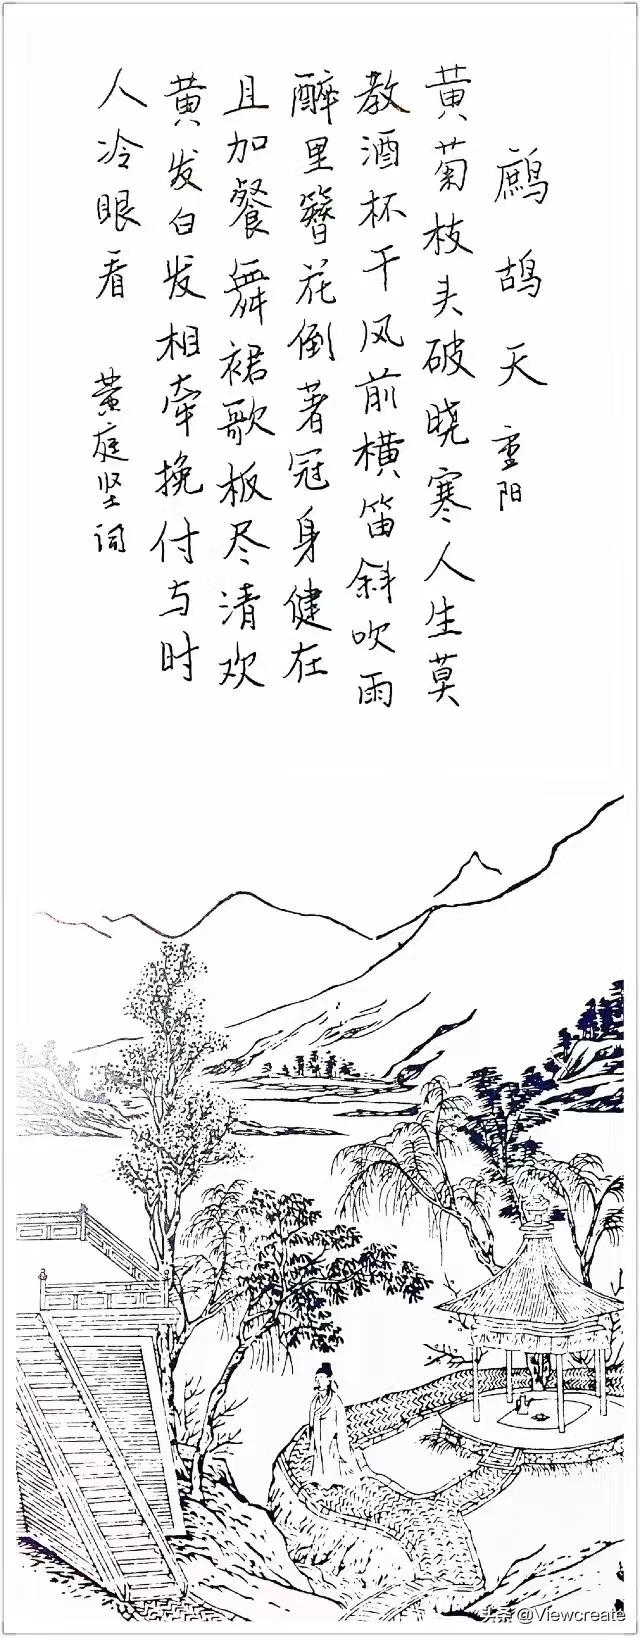 鹧鸪天 重阳
黄菊枝头破晓寒人生莫
教酒杯干风前横笛斜吹雨
醉里簪花倒著冠身健在
且加餐舞裙歌板尽清欢
黄发白发相牵挽付与时
人冷眼看 黄庭坚词
头条@Viewcreate